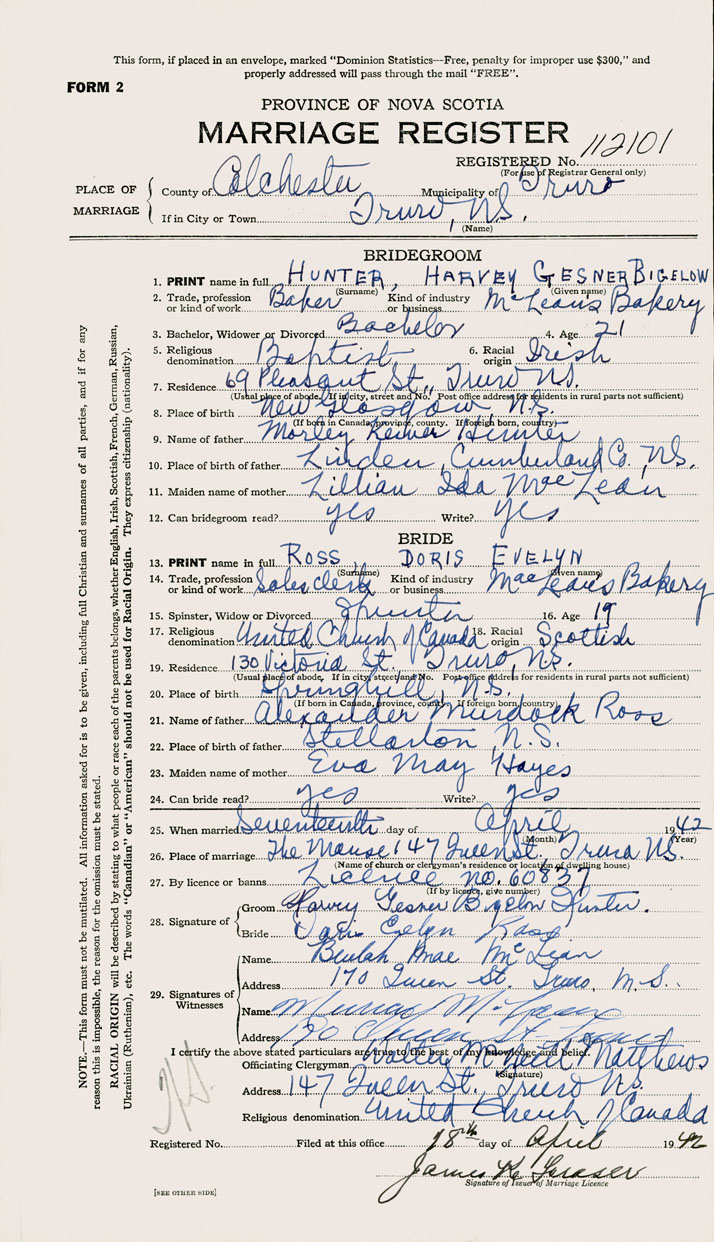 This form, if placed in an envelope, marked "Dominion Statistics—Free, penalty for improper use $300," and
properly addressed will pass through the mail "FREE".
FORM 2
PROVINCE OF NOVA SCOTIA
MARRIAGE REGISTER
REGISTERED No. 112101
(For use of Registrar General only)
PLACE OF MARRIAGE
County of Colchester Municipality of Truro
If in City or Town Truro, N.S.
(Name)
BRIDEGROOM
1. PRINT name in full HUNTER, HARVEY GESNER BIGELOW
(Surname) (Given name)
2. Trade, profession or kind of work Baker Kind of industry or business McLean's Bakery
3. Bachelor, Widower or Divorced Bachelor 4. Age 21
5. Religious denomination Baptist 6. Racial origin Irish
7. Residence 69 Pleasant St., Truro N.S.
(Usual place of abode. If in city, street and No. Post office address for residents in rural parts not sufficient)
8. Place of birth New Glasgow N.S.
(If born in Canada, province, county. If foreign born, country)
9. Name of father Morley Hunter
10. Place of birth of father Linden, Cumberland Co., N.S.
11. Maiden name of mother Lillian Ida MacLean
12. Can bridegroom read? yes Write? yes
BRIDE
13. PRINT name in full ROSS, DORIS EVELYN
(Surname) (Given name)
14. Trade, profession or kind of work Sales clerk Kind of industry or business MacLean's Bakery
15. Spinster, Widow or Divorced Spinster 16. Age 19
17. Religious denomination United Church of Canada 18. Racial origin Scottish
19. Residence 130 Victoria St. Truro, N.S.
(Usual place of abode, If in city, street and No. Post office address for residents in rural parts not sufficient)
20. Place of birth Springhill, N.S.
(If born in Canada, province, county. If foreign born, country)
21. Name of father Alexander Murdock Ross
22. Place of birth of father Stellarton, N.S.
23. Maiden name of mother Eva May Hayes
24. Can bride read? yes Write? yes
25. When married Seventeenth day of April 1942
(Month) (Year)
26. Place of marriage The Manse 147 Queen St., Truro N.S.
(Name of church or clergyman's residence or location of dwelling house)
27. By licence or banns Licence no. 60837
(If by licence, give number)
28. Signature of
Groom Harvey Gesner Bigelow Hunter.
Bride Doris Evelyn Ross
29. Signatures of Witnesses
Name Beulah Mae McLean
Address 170 Queen St. Truro, N.S.
Name Murray McLean
Address 170 Queen St. Truro
I certify the above stated particulars are true to the best of my knowledge and belief.
Officiating Clergyman Matthews
(Signature)
Address 147 Queen St., Truro N.S.
Religious denomination United Church of Canada
Registered No. Filed at this office 18th day of April 1942
James K. Fraser
Signature of Issuer of Marriage Licence
[SEE OTHER SIDE]
NOTE.—This form must not be mutilated. All information asked for is to be given, including full Christian and surnames of all parties, and if for any
reason this is impossible, the reason for the omission must be stated.
RACIAL ORIGIN will be described by stating to what people or race each of the parents belongs, whether English, Irish, Scottish, French, German, Russian,
Ukrainian (Ruthenian), etc. The words "Canadian" or "American" should not be used for Racial Origin. They express citizenship (nationality).